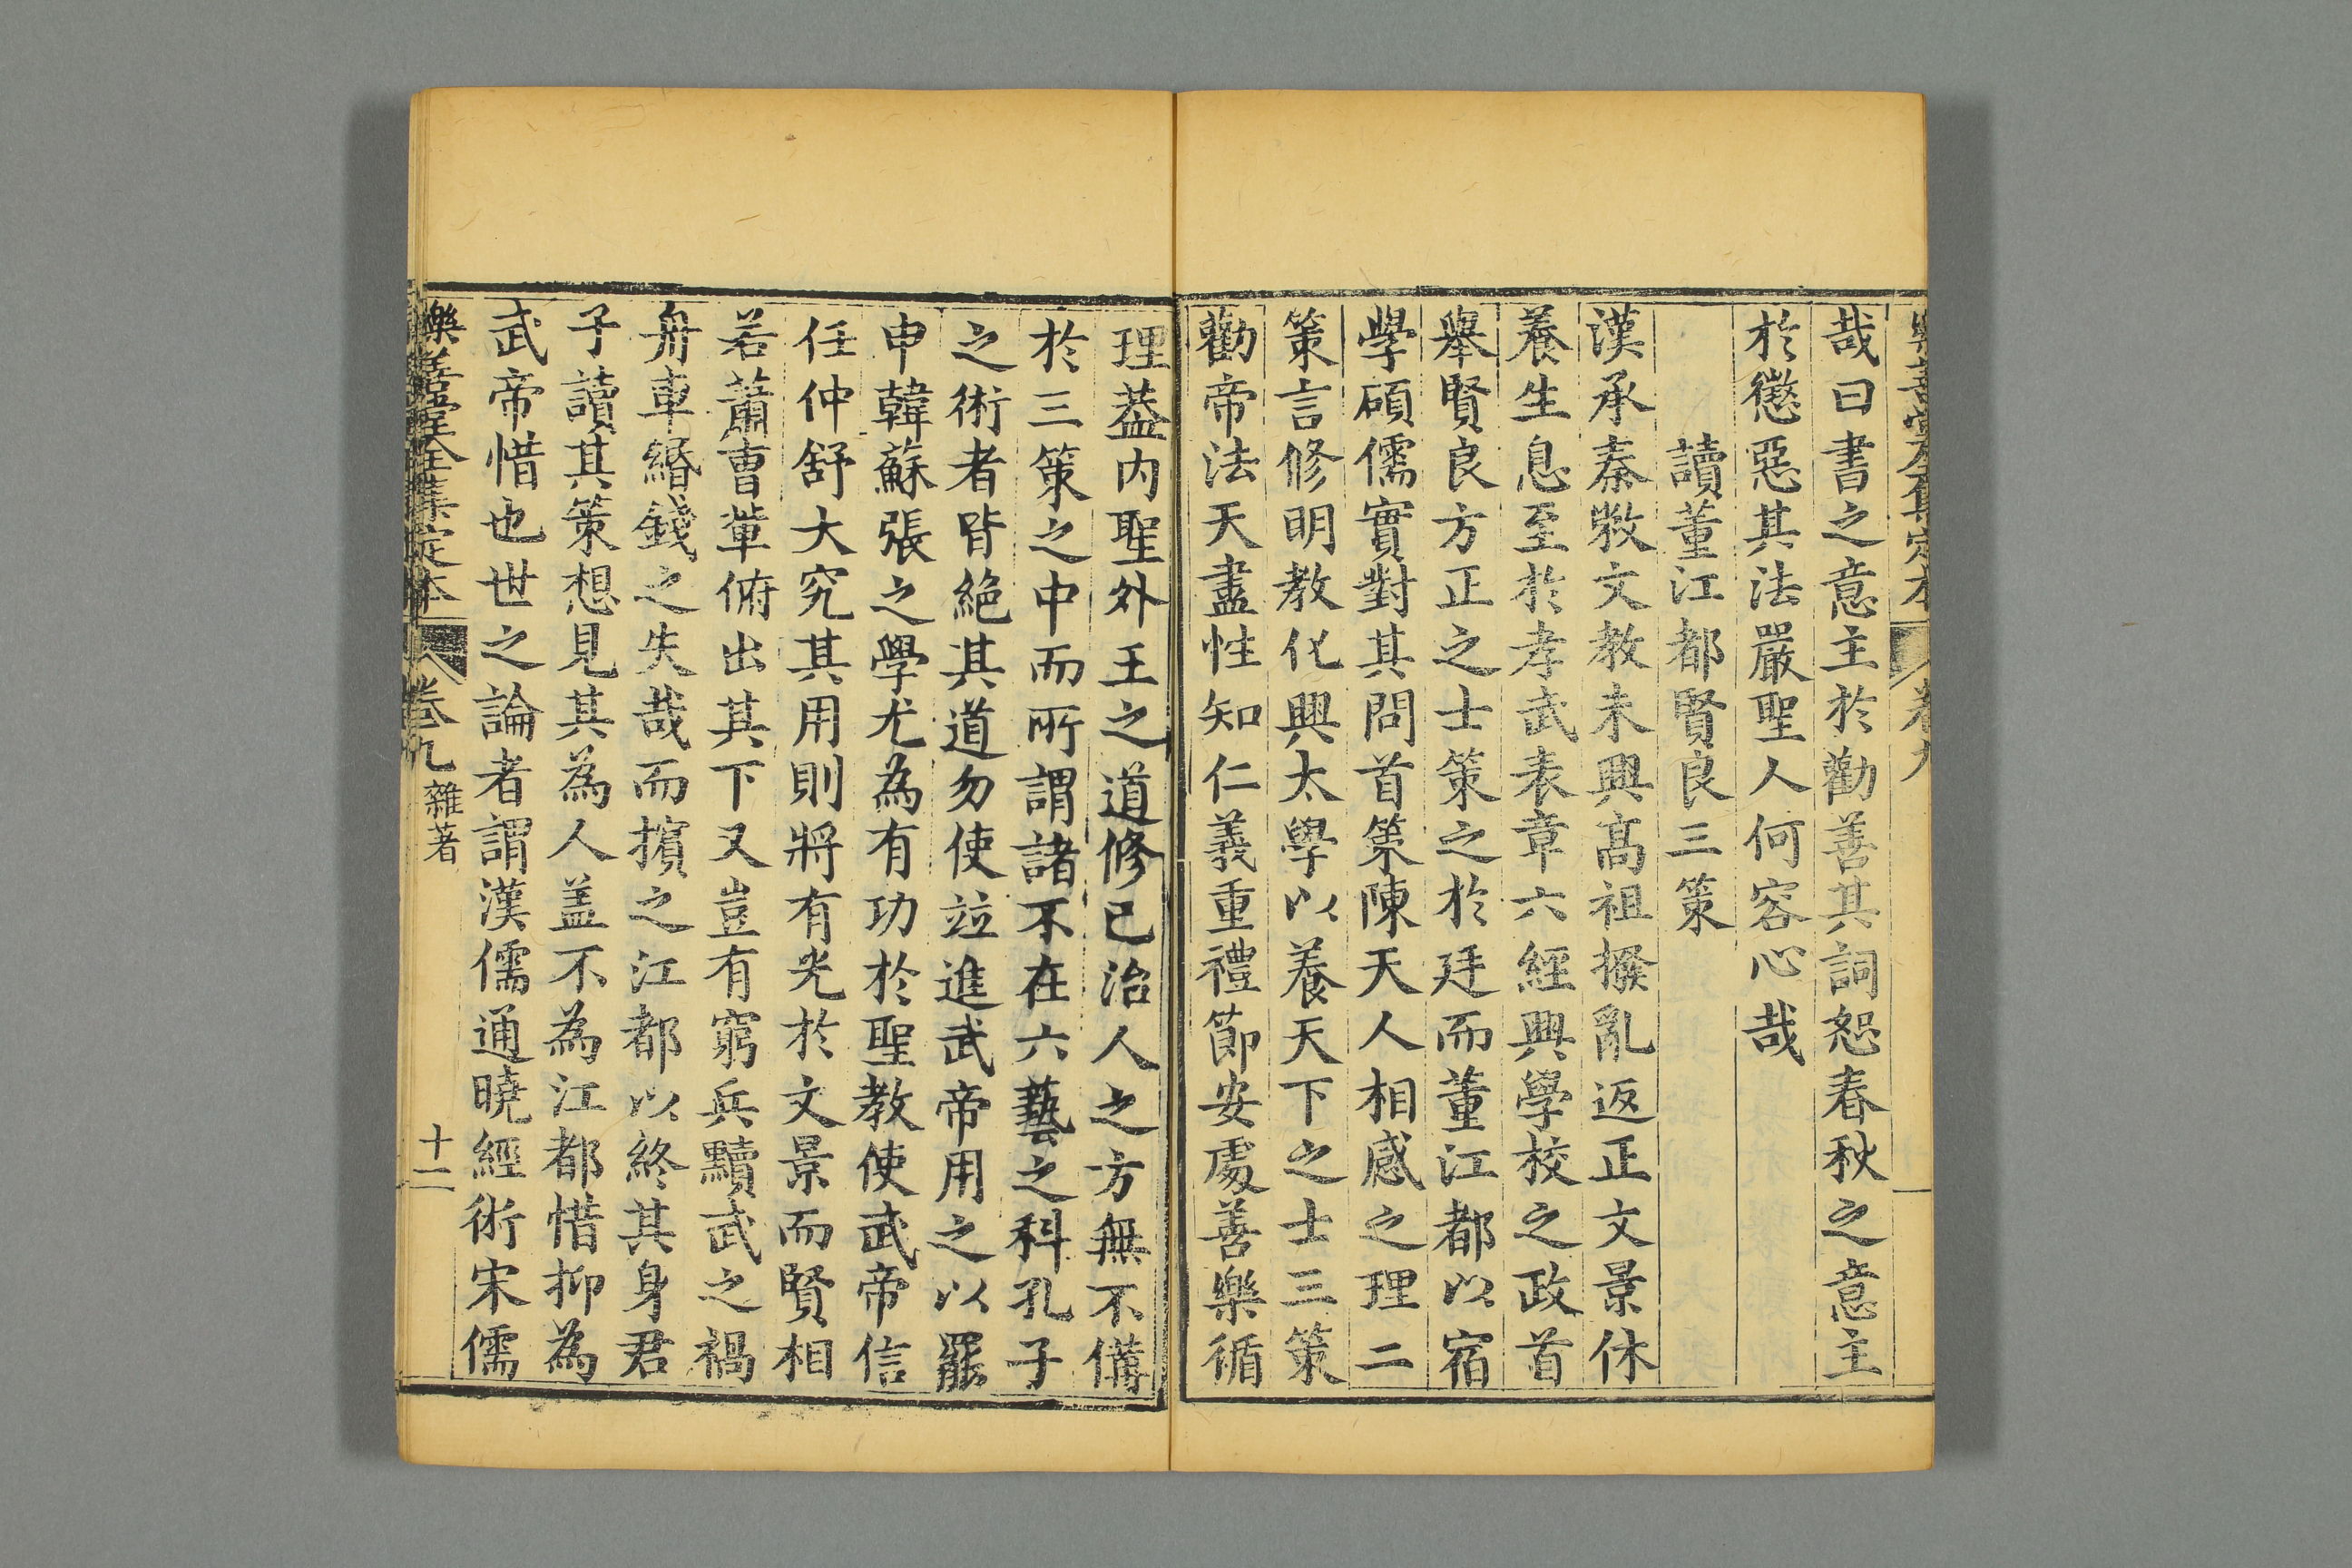 樂善堂全集定本 卷九
哉曰書之意主於勸善其詞恕春秋之意主
於懲惡其法嚴聖人何容心哉
讀董江都賢良三策
漢承秦敝文教未興高祖撥亂返正文景休
養生息至於孝武表章六經興學校之政首
舉賢良方正之士策之於廷而董江都以宿
學碩儒實對其問首策陳天人相感之理二
策言修明教化興太學以養天下之士三策
勸帝法天盡性知仁義重禮節安處善樂循
理葢内聖外王之道修己治人之方無不備
於三策之中而所謂諸不在六藝之科孔子
之術者皆絶其道勿使竝進武帝用之以罷
申韓蘇張之學尤為有功於聖教使武帝信
任仲舒大究其用則將有光於文景而賢相
若蕭曹軰俯出其下又豈有窮兵黷武之禍
舟車緡錢之失哉而擯之江都以終其身君
子讀其策想見其為人盖不為江都惜抑為
武帝惜也世之論者謂漢儒通曉經術宋儒
樂善堂全集定本 卷九 雜著 十二